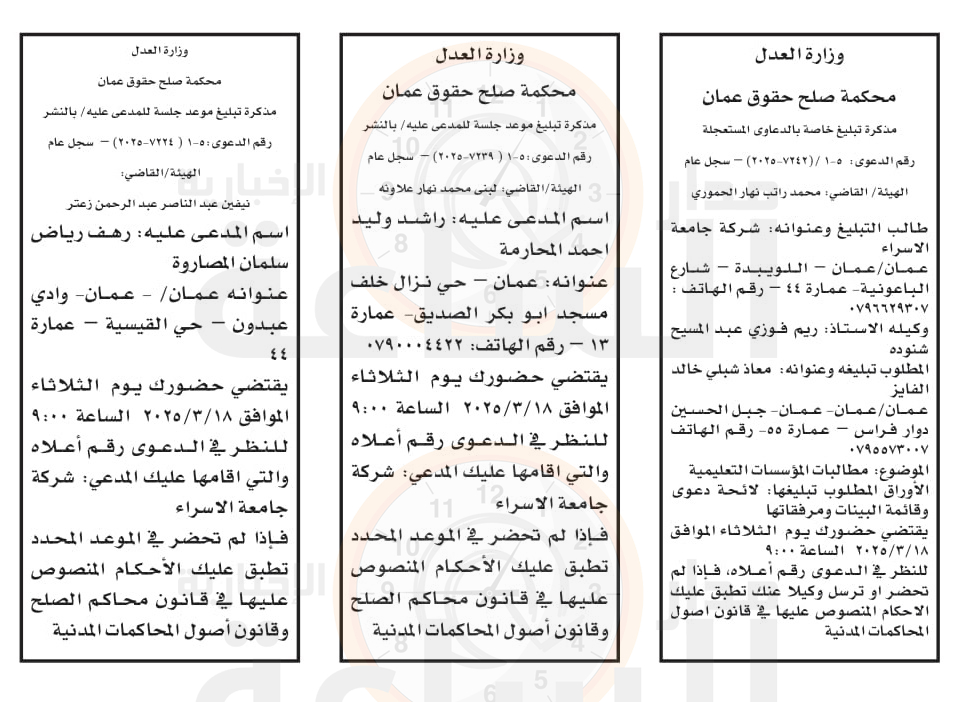 وزارة العدل
محكمة صلح حقوق عمان
مذكرة تبليغ خاصة بالدعاوى المستعجلة
رقم الدعوى: ٥-١ /(٧٢٤٢-٢٠٢٥) – سجل عام
الهيئة/ القاضي: محمد راتب نهار الحموري
طالب التبليغ وعنوانه: شركة جامعة
الاسراء
عمان/عمان – اللويبدة – شارع
الباعونية- عمارة ٤٤ – رقم الهاتف :
٠٧٩٦٦٢٩٣٠٧
وكيله الاستاذ: ريم فوزي عبد المسيح
شنوده
المطلوب تبليغه وعنوانه: معاذ شبلي خالد
الفايز
عمان/عمان- عمان- جبل الحسين
دوار فراس – عمارة ٥٥- رقم الهاتف
٠٧٩٥٥٧٣٠٠٧
الموضوع: مطالبات المؤسسات التعليمية
الأوراق المطلوب تبليغها: لائحة دعوى
وقائمة البينات ومرفقاتها
يقتضي حضورك يوم الثلاثاء الموافق
٢٠٢٥/٣/١٨ الساعة ٩:٠٠
للنظر في الدعوى رقم أعلاه، فإذا لم
تحضر او ترسل وكيلا عنك تطبق عليك
الاحكام المنصوص عليها في قانون اصول
المحاكمات المدنية
وزارة العدل
محكمة صلح حقوق عمان
مذكرة تبليغ موعد جلسة للمدعى عليه/ بالنشر
رقم الدعوى:٥-١ ( ٧٢٣٩-٢٠٢٥) – سجل عام
الهيئة/القاضي: لبنى محمد نهار علاونه
اسم المدعى عليه: راشد وليد
احمد المحارمة
عنوانه: عمان – حي نزال خلف
مسجد ابو بكر الصديق- عمارة
١٣ – رقم الهاتف: ٠٧٩٠٠٠٤٤٢٢
يقتضي حضورك يوم الثلاثاء
الموافق ٢٠٢٥/٣/١٨ الساعة ٩:٠٠
للنظر في الدعوى رقم أعلاه
والتي اقامها عليك المدعي: شركة
جامعة الاسراء
فإذا لم تحضر في الموعد المحدد
تطبق عليك الأحكام المنصوص
عليها في قانون محاكم الصلح
وقانون أصول المحاكمات المدنية
وزارة العدل
محكمة صلح حقوق عمان
مذكرة تبليغ موعد جلسة للمدعى عليه/ بالنشر
رقم الدعوى:٥-١ ( ٧٢٢٤-٢٠٢٥) – سجل عام
الهيئة/القاضي:
نيفين عبد الناصر عبد الرحمن زعتر
اسم المدعى عليه: رهف رياض
سلمان المصاروة
عنوانه عمان/ - عمان- وادي
عبدون – حي القيسية – عمارة
٤٤
يقتضي حضورك يوم الثلاثاء
الموافق ٢٠٢٥/٣/١٨ الساعة ٩:٠٠
للنظر في الدعوى رقم أعلاه
والتي اقامها عليك المدعي: شركة
جامعة الاسراء
فإذا لم تحضر في الموعد المحدد
تطبق عليك الأحكام المنصوص
عليها في قانون محاكم الصلح
وقانون أصول المحاكمات المدنية